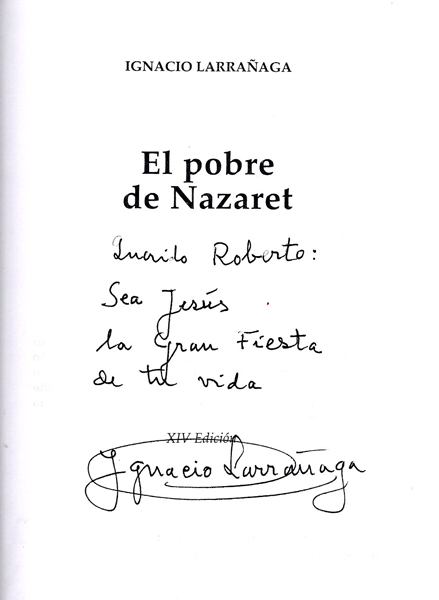 IGNACIO LARRAÑAGA
El pobre
de Nazaret
Querido Roberto:
Sea Jesús
la Gran Fiesta
de tu vida
XIV Edición
Ignacio Larrañaga